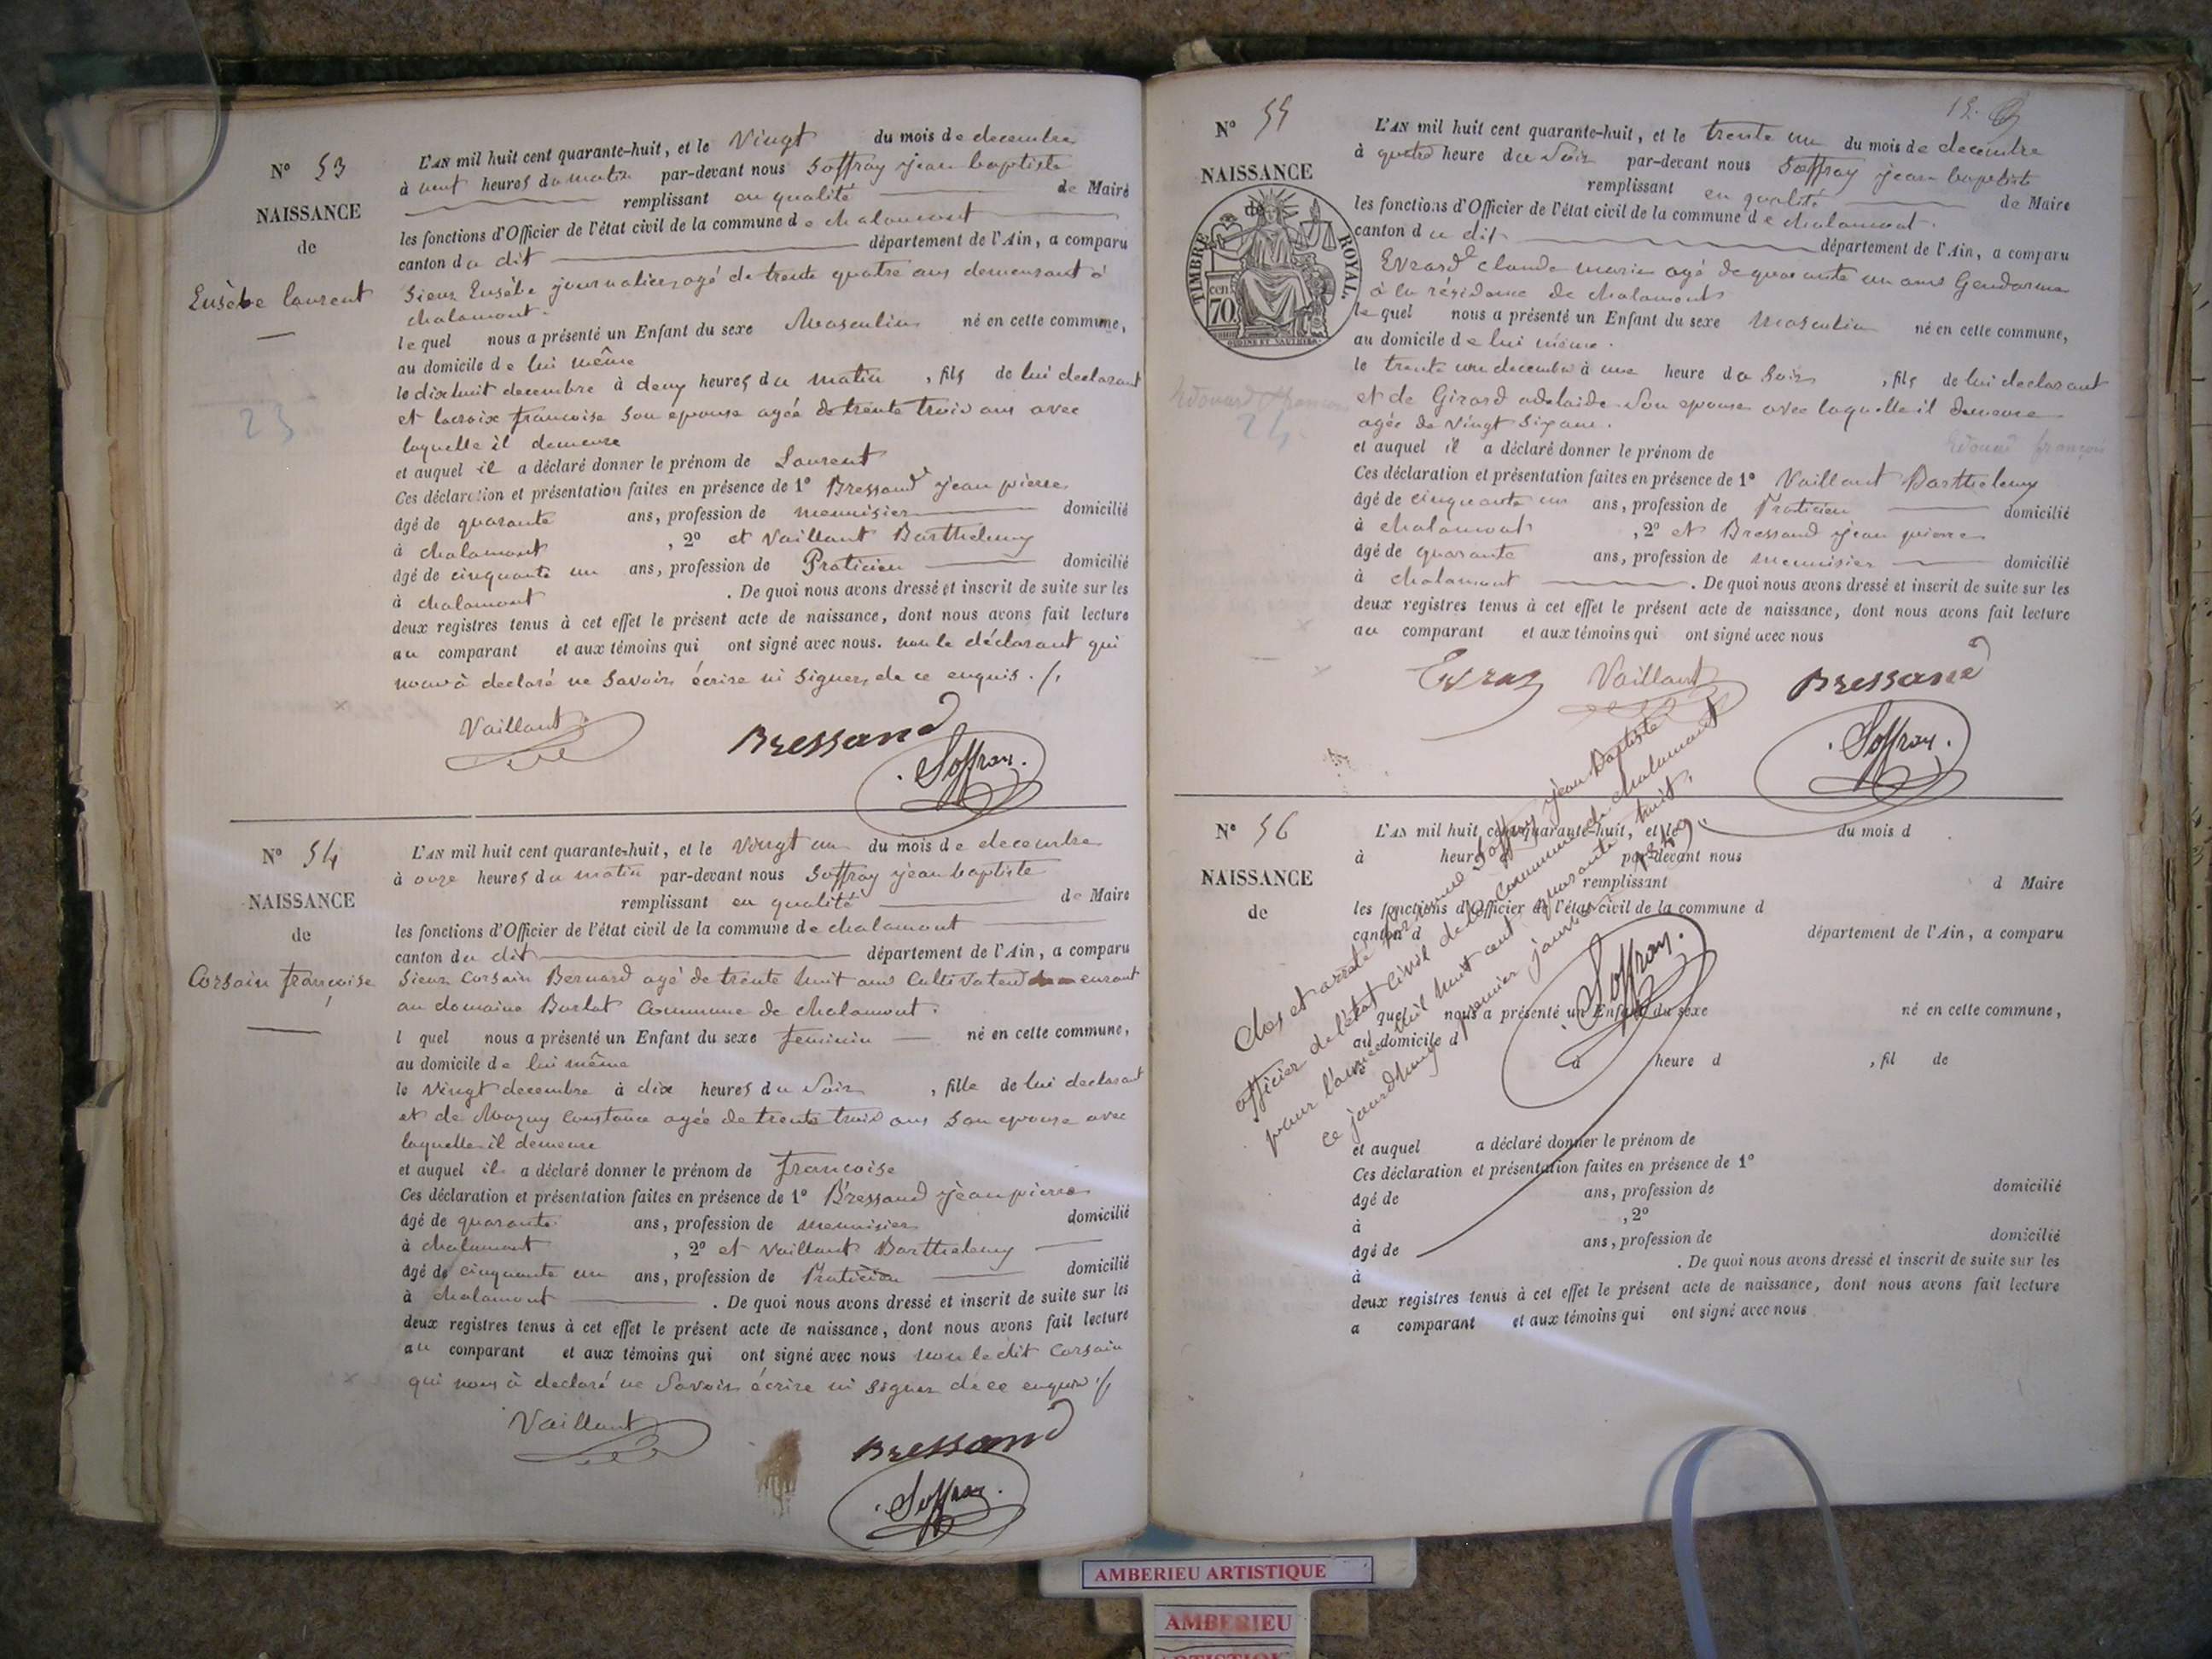 N° 53
NAISSANCE
de
Eusèbe laurent
23
L'AN mil huit cent quarante-huit, et le Vingt du mois de decembre
à neuf heures du matin par-devant nous Soffray jean baptiste
remplissant en qualité de Maire
les fonctions d'Officier de l'état civil de la commune de chalamont
canton du dit département de l'Ain, a comparu
Sieur Eusèbe journalier, agé de trente quatre ans demeurant à
chalamont.
lequel nous a présenté un Enfant du sexe Masculin né en cette commune,
au domicile de lui même
le dix huit decembre à deux heures du matin, fils de lui declarant
et lacroix francoise son epouse agée de trente trois ans avec
laquelle il demeure
et auquel il a déclaré donner le prénom de Laurent
Ces déclaration et présentation faites en présence de 1° Bressand jean pierre
âgé de quarante ans, profession de menuisier domicilié
à chalamont, 2° et Vaillant Barthelemy
âgé de cinquante un ans, profession de Praticien domicilié
à chalamont. De quoi nous avons dressé et inscrit de suite sur les
deux registres tenus à cet effet le présent acte de naissance, dont nous avons fait lecture
au comparant et aux témoins qui ont signé avec nous. non le déclarant qui
nous à declaré ne savoir écrire ni signer, de ce enquis ./.
Vaillant
Bressand
Soffray
N° 54
NAISSANCE
de
Corsain françoise
L'AN mil huit cent quarante-huit, et le vingt un du mois de decembre
à onze heures du matin par-devant nous Soffray jean baptiste
remplissant en qualité de Maire
les fonctions d'Officier de l'état civil de la commune de chalamont
canton du dit département de l'Ain, a comparu
Sieur Corsain Bernard agé de trente huit ans Cultivateur
au domaine Barlat Commune de chalamont.
l quel nous a présenté un Enfant du sexe feminin né en cette commune,
au domicile de lui même
le vingt decembre à dix heures du soir, fille de lui declarant
et de Constance agée de trente trois ans son epouse avec
laquelle il demeure
et auquel il a déclaré donner le prénom de francoise
Ces déclaration et présentation faites en présence de 1° Bressand jean pierre
âgé de quarante ans, profession de menuisier domicilié
à chalamont, 2° et Vaillant Barthelemy
âgé de cinquante un ans, profession de Praticien domicilié
à chalamont. De quoi nous avons dressé et inscrit de suite sur les
deux registres tenus à cet effet le présent acte de naissance, dont nous avons fait lecture
au comparant et aux témoins qui ont signé avec nous non le dit Corsain
qui nous à declaré ne savoir écrire ni signer de ce enquis ./.
Vaillant
Bressand
Soffray
N° 55
NAISSANCE
de
TIMBRE ROYAL.
70 cen.
L'AN mil huit cent quarante-huit, et le trente un du mois de decembre
à quatre heure du soir par-devant nous Soffray jean baptiste
remplissant en qualité de Maire
les fonctions d'Officier de l'état civil de la commune de chalamont.
canton du dit département de l'Ain, a comparu
Evrard claude marie agé de quarante un ans Gendarme
à la résidence de chalamont
lequel nous a présenté un Enfant du sexe masculin né en cette commune,
au domicile de lui même.
le trente un decembre à une heure du soir, fils de lui declarant
et de Girard adelaide son epouse avec laquelle il demeure
agée de vingt six ans.
et auquel il a déclaré donner le prénom de Edouard françois
Ces déclaration et présentation faites en présence de 1° Vaillant Barthelemy
âgé de cinquante un ans, profession de Praticien domicilié
à chalamont, 2° et Bressand jean pierre
âgé de quarante ans, profession de menuisier domicilié
à chalamont. De quoi nous avons dressé et inscrit de suite sur les
deux registres tenus à cet effet le présent acte de naissance, dont nous avons fait lecture
au comparant et aux témoins qui ont signé avec nous
Vaillant
Bressand
Soffray
N° 56
NAISSANCE
de
L'AN mil huit cent quarante-huit, et le du mois d
à heure par-devant nous
remplissant d Maire
les fonctions d'Officier de l'état civil de la commune d
canton d département de l'Ain, a comparu
quel nous a présenté un Enfant du sexe né en cette commune,
au domicile d
à heure d , fil de
et auquel a déclaré donner le prénom de
Ces déclaration et présentation faites en présence de 1°
âgé de ans, profession de domicilié
à , 2°
âgé de ans, profession de domicilié
à . De quoi nous avons dressé et inscrit de suite sur les
deux registres tenus à cet effet le présent acte de naissance, dont nous avons fait lecture
a comparant et aux témoins qui ont signé avec nous
Clos et arreté par nous Soffray jean Baptiste
officier de l'état Civil de la commune de chalamont
pour l'année mil huit cent quarante huit,
ce jourdhuy premier janvier 1849.
Soffray
AMBERIEU ARTISTIQUE
AMBERIEU
ARTISTIQUE